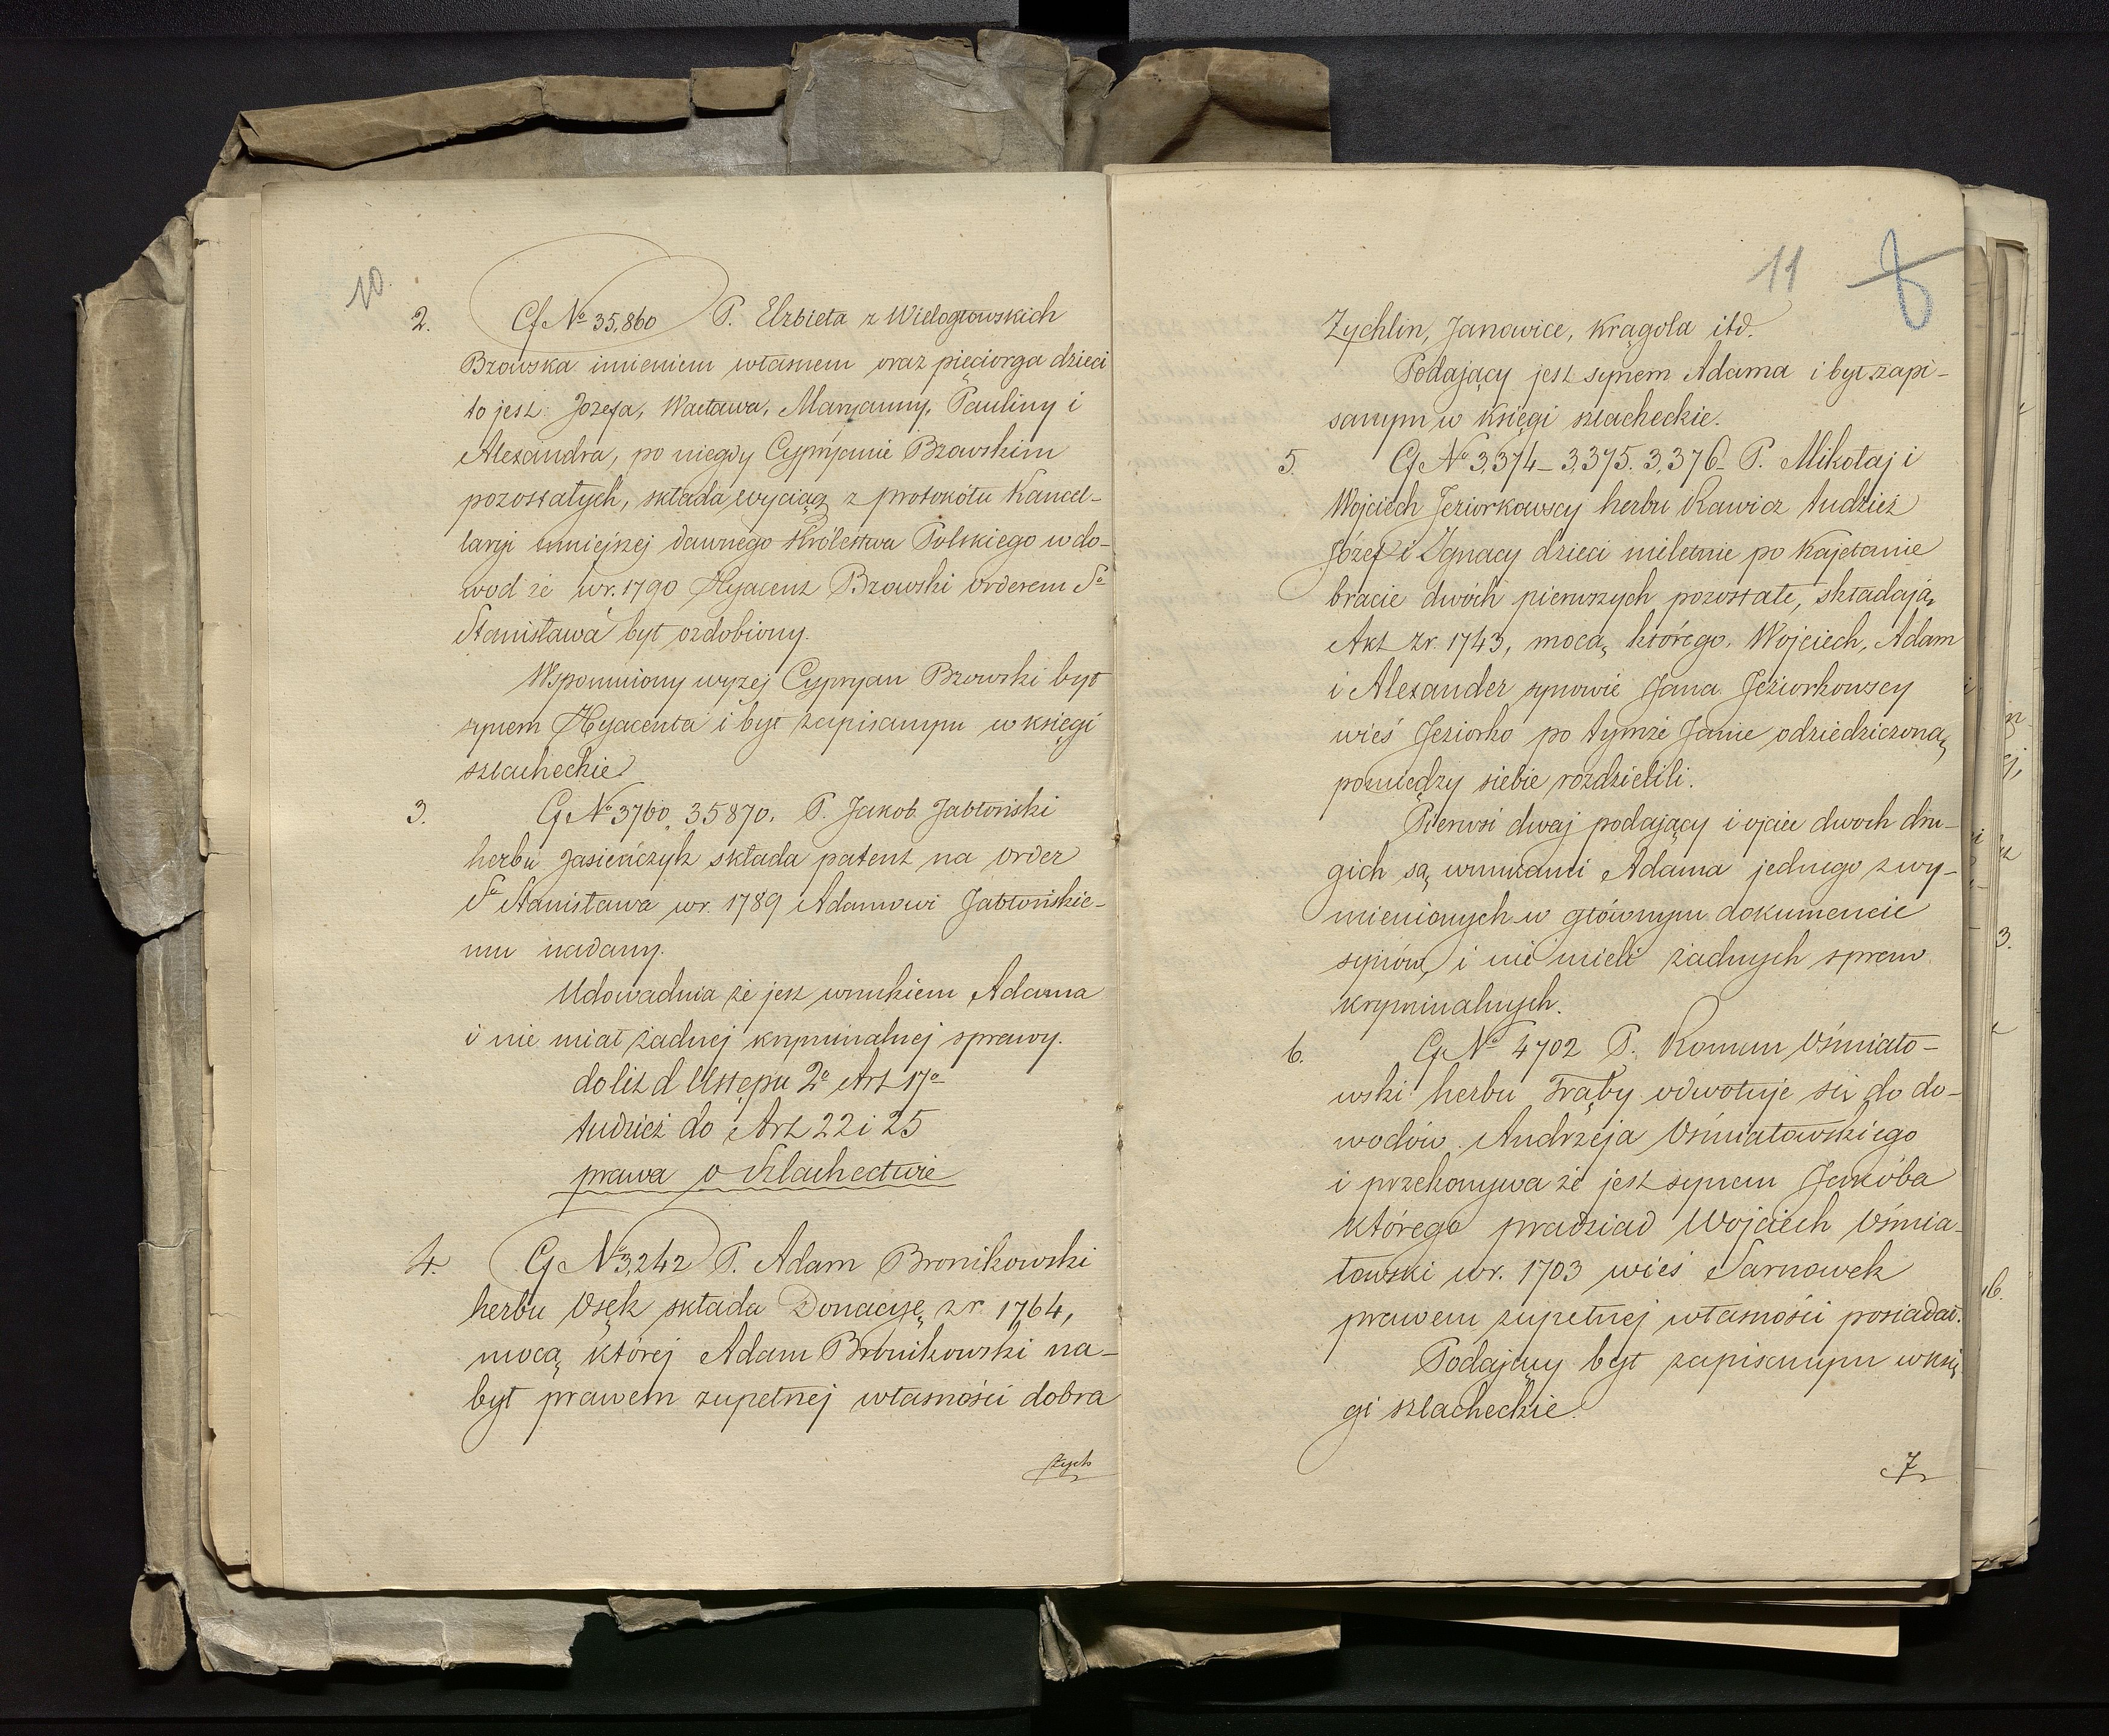 10.
2. Cf № 35,860 P. Elzbieta z Wielogłowskich
Bzowska imieniem własnem oraz pięciorga dzieci
to jest: Jozefa, Wacława, Maryanny, Pauliny i
Alexandra, po niegdy Cypryanie Bzowskim
pozostałych, składa wyciąg z protokółu Kancel-
laryi mniejszej dawnego Królestwa Polskiego w do-
wod że w r. 1790 Hyacent Bzowski orderem Sº
Stanisława był ozdobiony.
Wspomniony wyzej Cypryan Bzowski był
synem Hyacenta i był zapisanym w księgi
szlacheckie.
3. Cf № 3760, 35870. P. Jakob Jabłoński
herbu Jasieńczyk składa patent na order
Sº Stanisława w r. 1789 Adamowi Jabłońskie-
mu nadany.
Udowadnia że jest wnukiem Adama
i nie miał żadnej kryminalnej sprawy.
do lit d Ustępu 2º Art 17º
tudzież do Art 22 i 25
prawa o Szlachectwie
4. Cf № 3,242 P. Adam Bronikowski
herbu Osęk składa Donacyę z r. 1764,
mocą której Adam Bronikowski na-
był prawem zupełnej własności dobra
żych
11 8
Zychlin, Janowice, Krągola itd.
Podający jest synem Adama i był zapi-
sanym w księgi szlacheckie.
5. Cf № 3,374 - 3,375. 3,376 - P. Mikołaj i
Wojciech Jeziorkowscy herbu Rawicz tudzież
Józef i Ignacy dzieci nieletnie po Kajetanie
bracie dwóch pierwszych pozostałe, składają
Akt z r. 1743, mocą którego, Wojciech, Adam
i Alexander synowie Jana Jeziorkowscy
wieś Jeziorko po tymże Janie odziedziczoną
pomiędzy siebie rozdzielili.
Pierwsi dwaj podający i ojciec dwoch dru-
gich są wnukami Adama jednego z wy-
mienionych w głównym dokumencie
synów, i nie mieli żadnych spraw
kryminalnych.
6. Cf № 4702 P. Roman Ośmiało-
wski herbu Trąby odwołuje się do do-
wodów Andrzeja Ośmiałowskiego
i przekonywa że jest synem Jakóba
którego pradziad Wojciech Ośmia-
łowski w r. 1703 wieś Sarnowek
prawem zupełnej własności posiadał.
Podający był zapisanym w księ-
gi szlacheckie.
7
3.